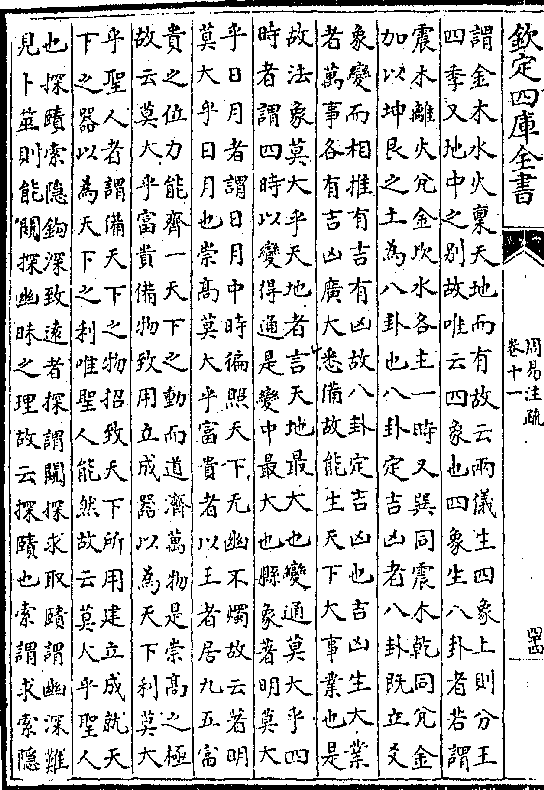 欽定四庫全書
周易注疏
卷十一
謂金木水火稟天地而有故云兩儀生四象土則分王
四季又地中之别故唯云四象也四象生八卦者若謂
震木離火兌金坎水各主一時又巽同震木乾同兌金
加以坤艮之土為八卦也八卦定吉凶者八卦既立爻
象變而相推有吉有凶故八卦定吉凶也吉凶生大業
者萬事各有吉凶廣大悉備故能生天下大事業也是
故法象莫大乎天地者言天地最大也變通莫大乎四
時者謂四時以變得通是變中最大也縣象著明莫大
乎日月者謂日月中時徧照天下无幽不燭故云著明
莫大乎日月也崇高莫大乎富貴者以王者居九五富
貴之位力能齊一天下之動而道濟萬物是崇高之極
故云莫大乎富貴備物致用立成器以為天下利莫大
乎聖人者謂備天下之物招致天下所用建立成就天
下之器以為天下之利唯聖人能然故云莫大乎聖人
也探賾索隐鈎深致遠者探謂闚探求取賾謂幽深難
見卜筮則能闚探幽昧之理故云探賾也索謂求索隐